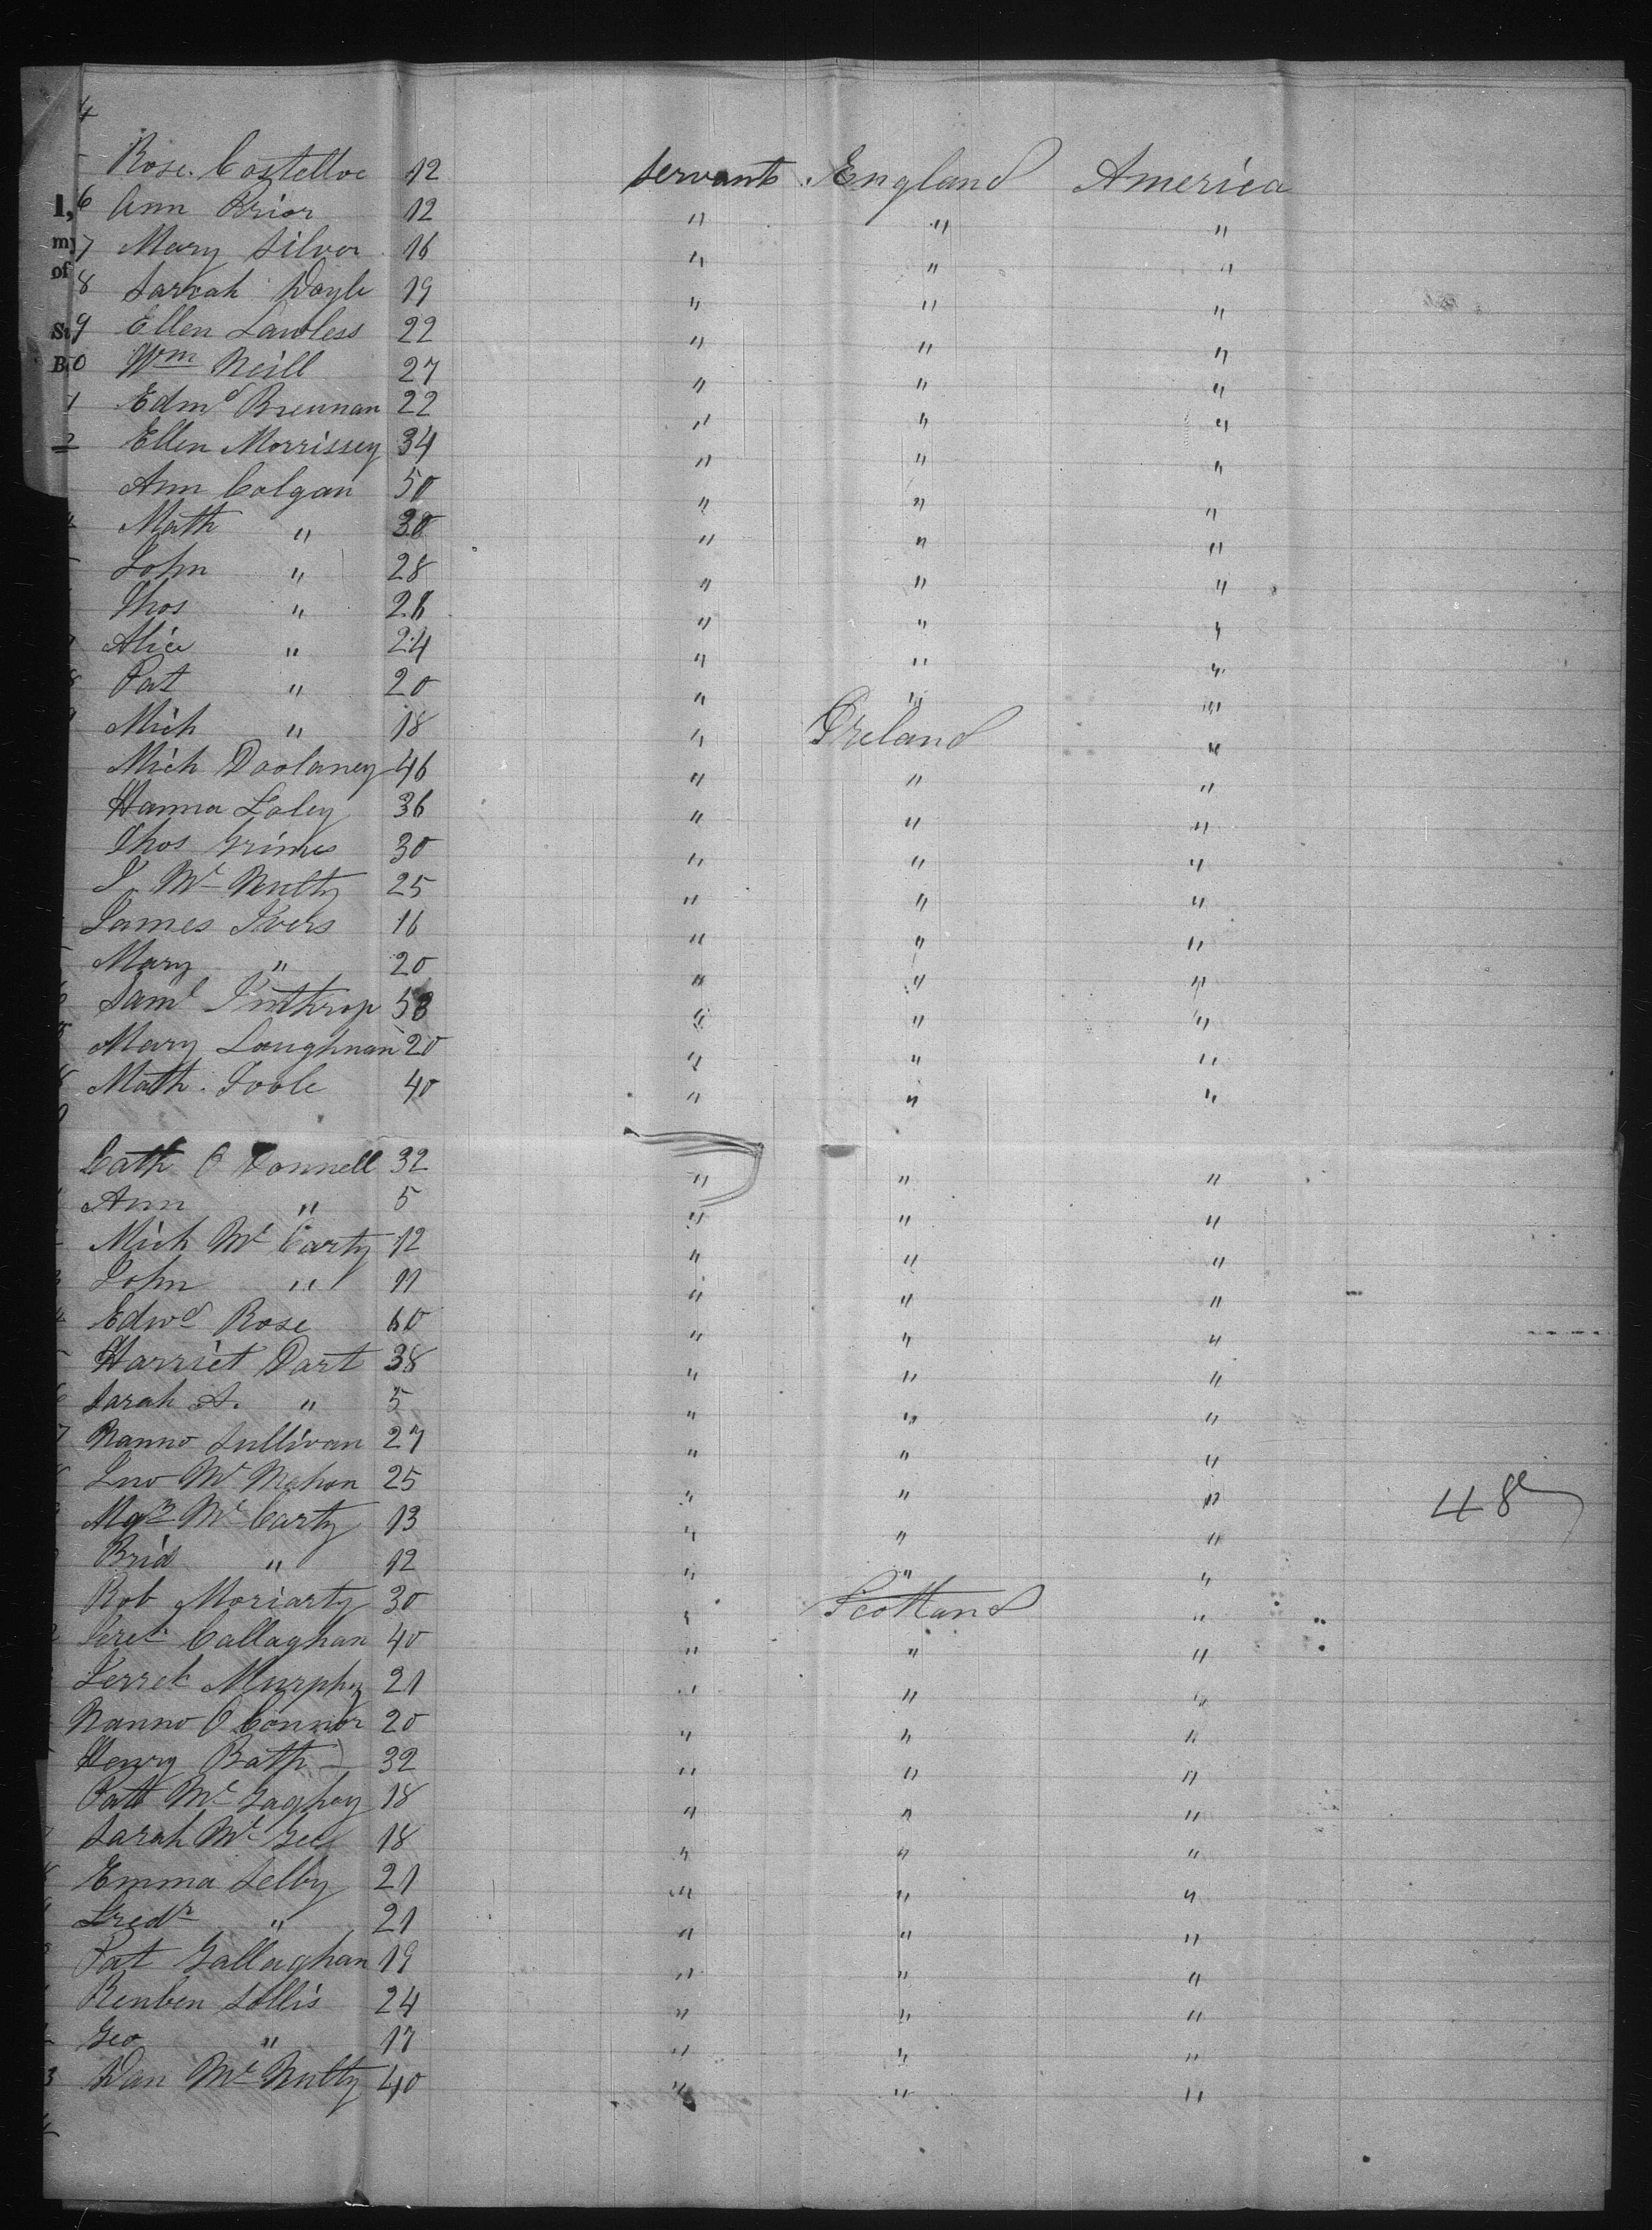 4
Rose Costelloe 12 servants England America
6 Ann Prior 12 " " "
7 Mary Silvor 16 " " "
8 Sarrah Doyle 19 " " "
9 Ellen Lawless 22 " " "
0 Wm Neill 27 " " "
1 Edmd Brennan 22 " " "
2 Ellen Morrissey 34 " " "
Ann Colgan 50 " " "
Math " 30 " " "
John " 28 " " "
Thos " " " "
Alice " 24 " " "
Pat " 20 " " "
Mich " 18 " Ireland "
Mich Doolaney 46 " " "
Hanna Foley 36 " " "
Thos Grimes 30 " " "
Mc Nulty 25 " " "
James Ivers 16 " " "
Mary " 20 " " "
Saml 58 " " "
Mary Loughnan 20 " " "
Math Toole 40 " " "
Cath O Donnell 32 " " "
Ann " 5 " " "
Mich Mc Carty 12 " " "
John " 11 " " "
Edwd Rose 60 " " "
Harriet Dart 38 " " "
Sarah A. " 5 " " "
Nanno Sullivan 27 " " "
Jno Mc Mahon 25 " " "
48
Mc Carty 13 " " "
Brid " 12 " " "
Rob Moriarty 30 " Scotland "
Callaghan 40 " " "
Murphy 21 " " "
Nanno O Connor 20 " " "
Henry Bath 32 " " "
Patt Mc Gaghey 18 " " "
Sarah Mc Gee 18 " " "
Emma Selby 21 " " "
Fredr " 21 " " "
Pat Gallaghan 19 " " "
Reuben Sollis 24 " " "
Geo " 17 " " "
3 Dan Mc Nulty 40 " " "